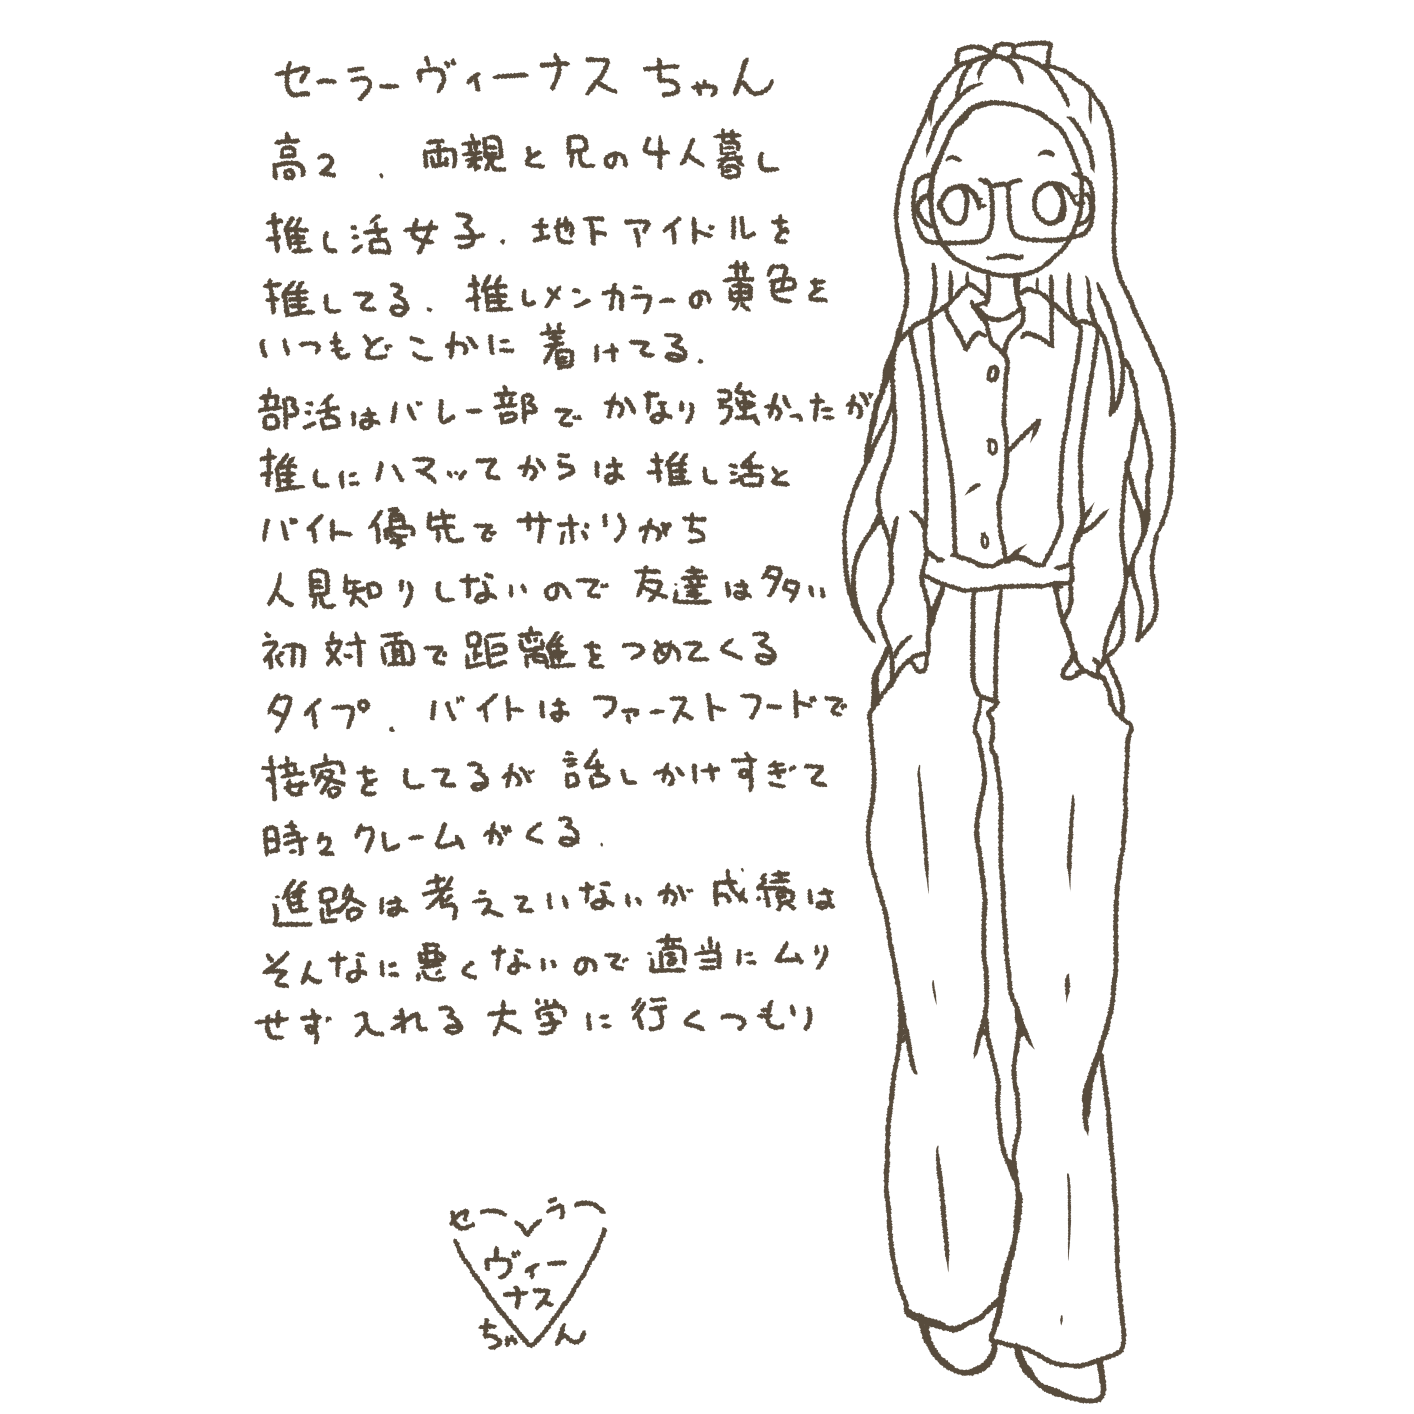 セーラーヴィーナスちゃん
高2．両親と兄の4人暮し
推し活女子．地下アイドルを
推してる．推しメンカラーの黄色を
いつもどこかに着けてる．
部活はバレー部でかなり強かったが
推しにハマッてからは推し活と
バイト優先でサボりがち
人見知りしないので友達は多い
初対面で距離をつめてくる
タイプ．バイトはファーストフードで
接客をしてるが話しかけすぎて
時々クレームがくる．
進路は考えていないが成績は
そんなに悪くないので適当にムリ
せず入れる大学に行くつもり
セーラー
ヴィー
ナス
ちゃん